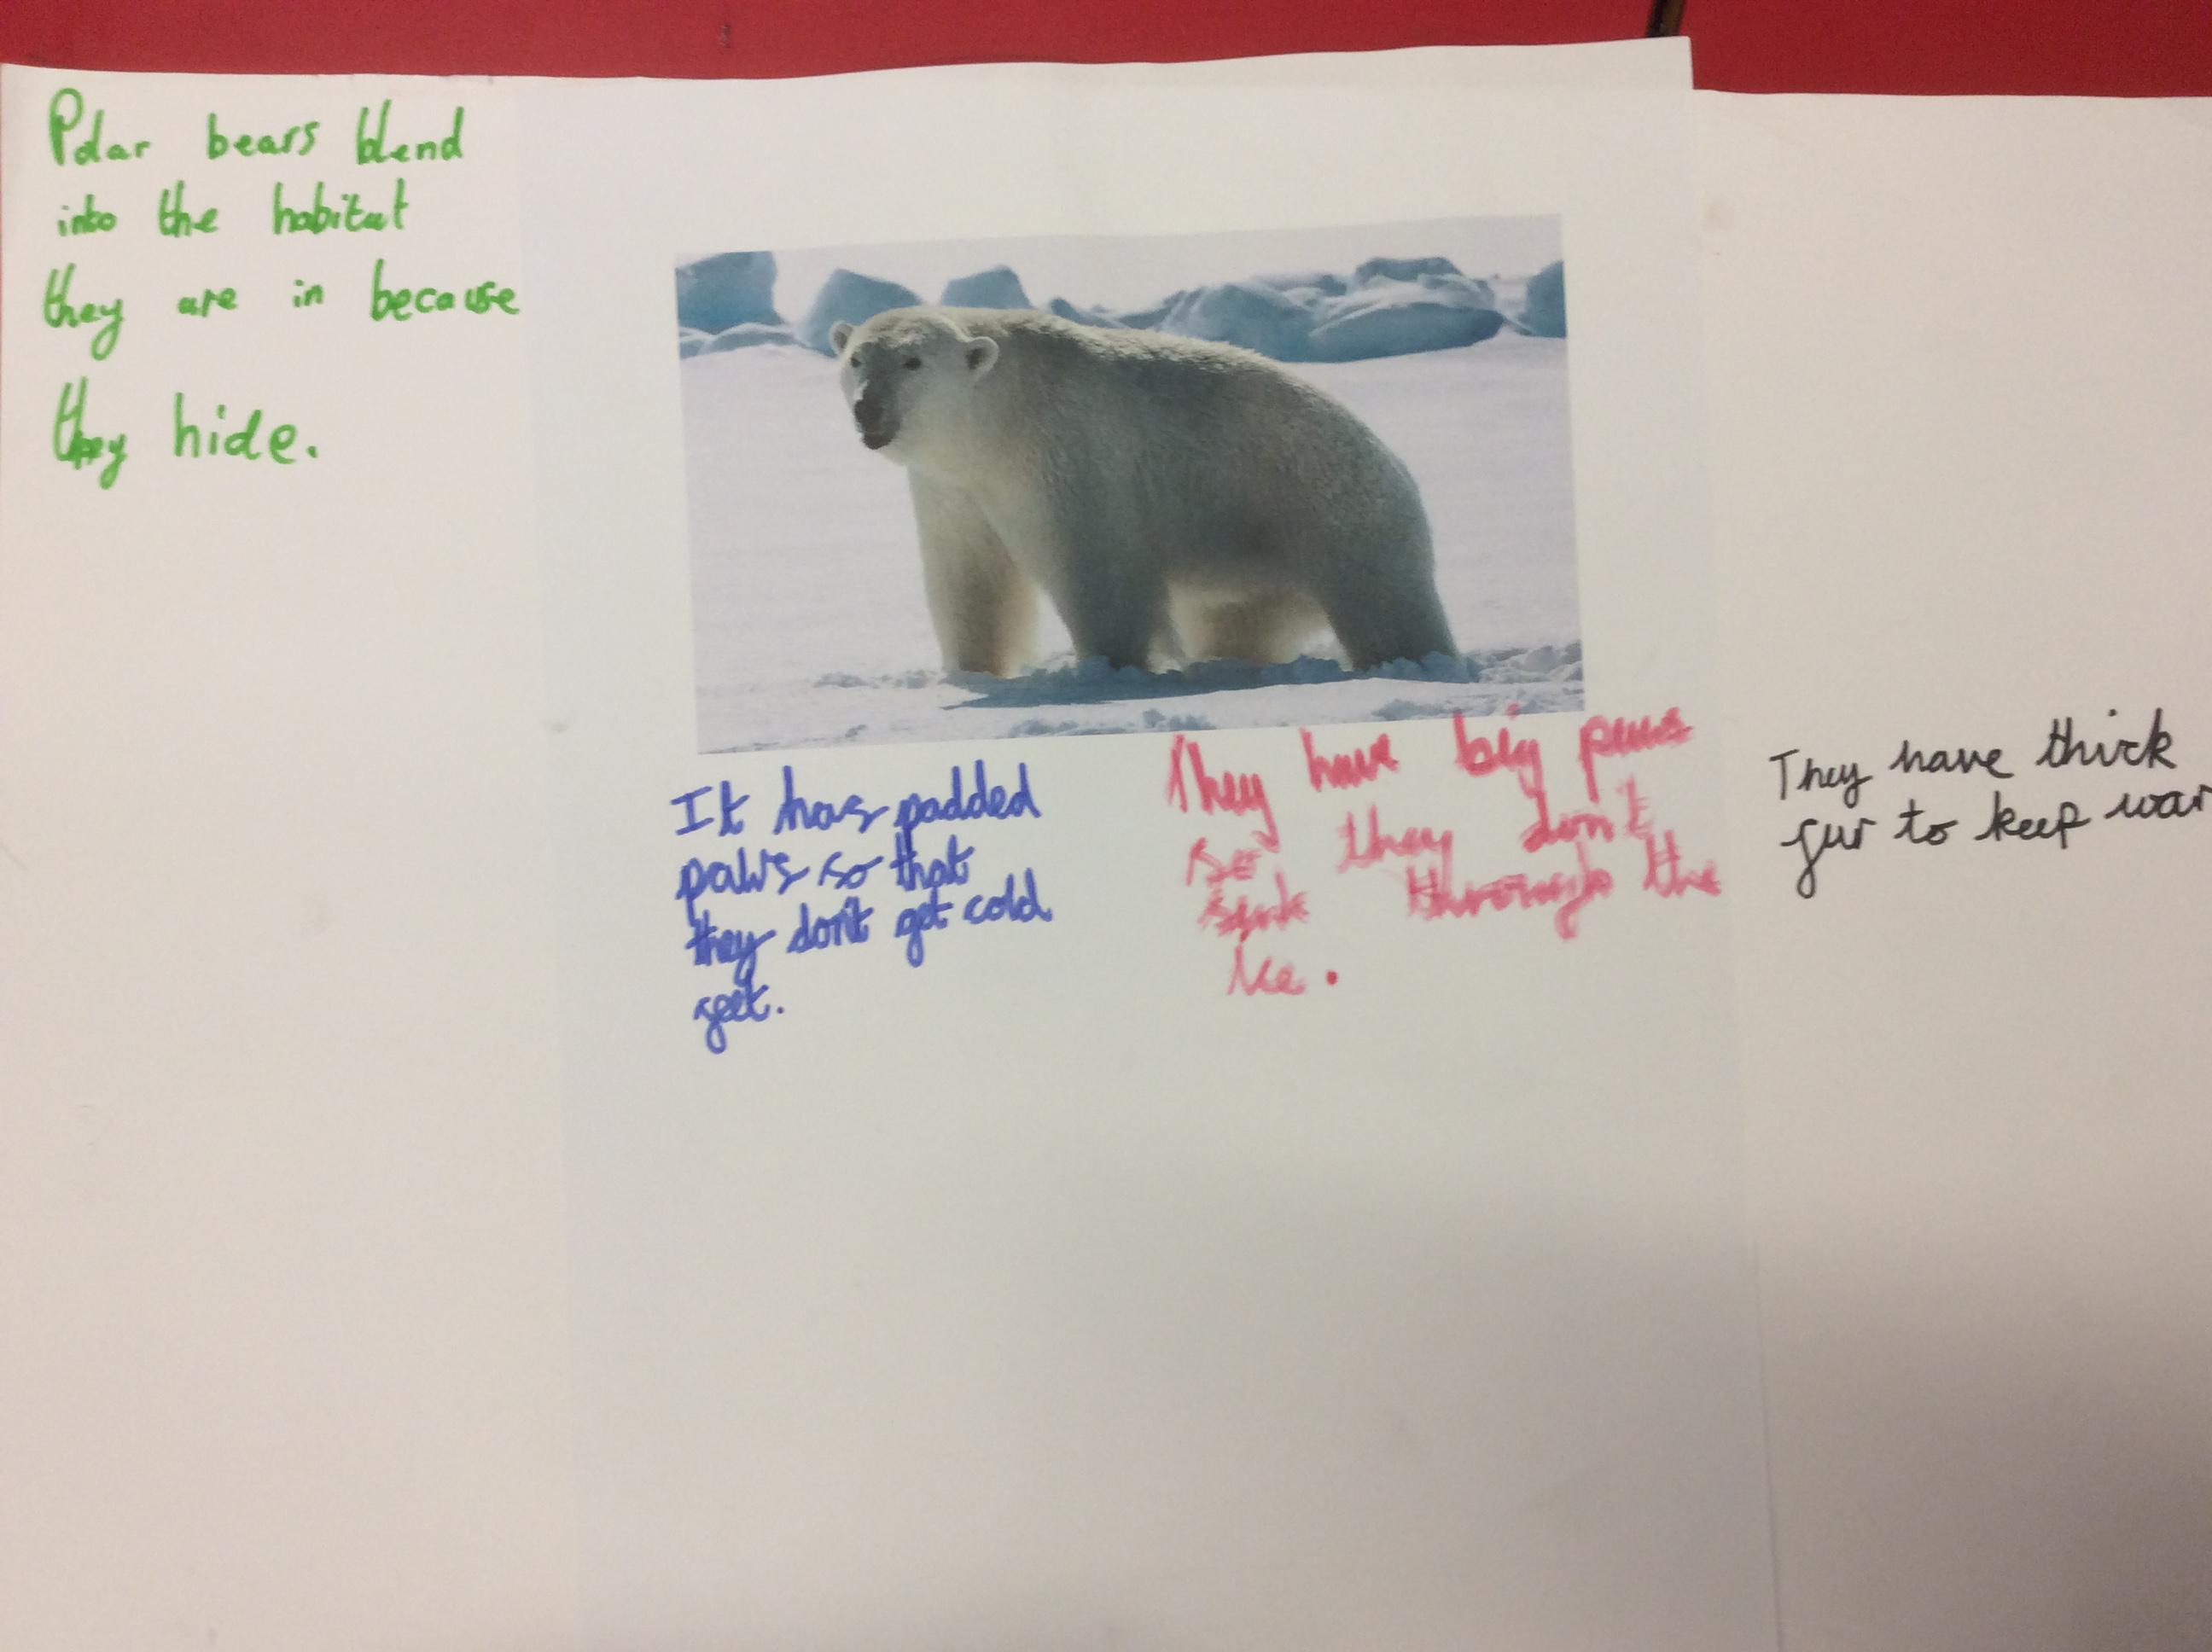 Polar bears blend
into the habitat
they are in because
they hide.
It has padded
paws so that
they don't get cold
feet.
They have big paws
so they don't
sink through the
ice.
They have thick
fur to keep war